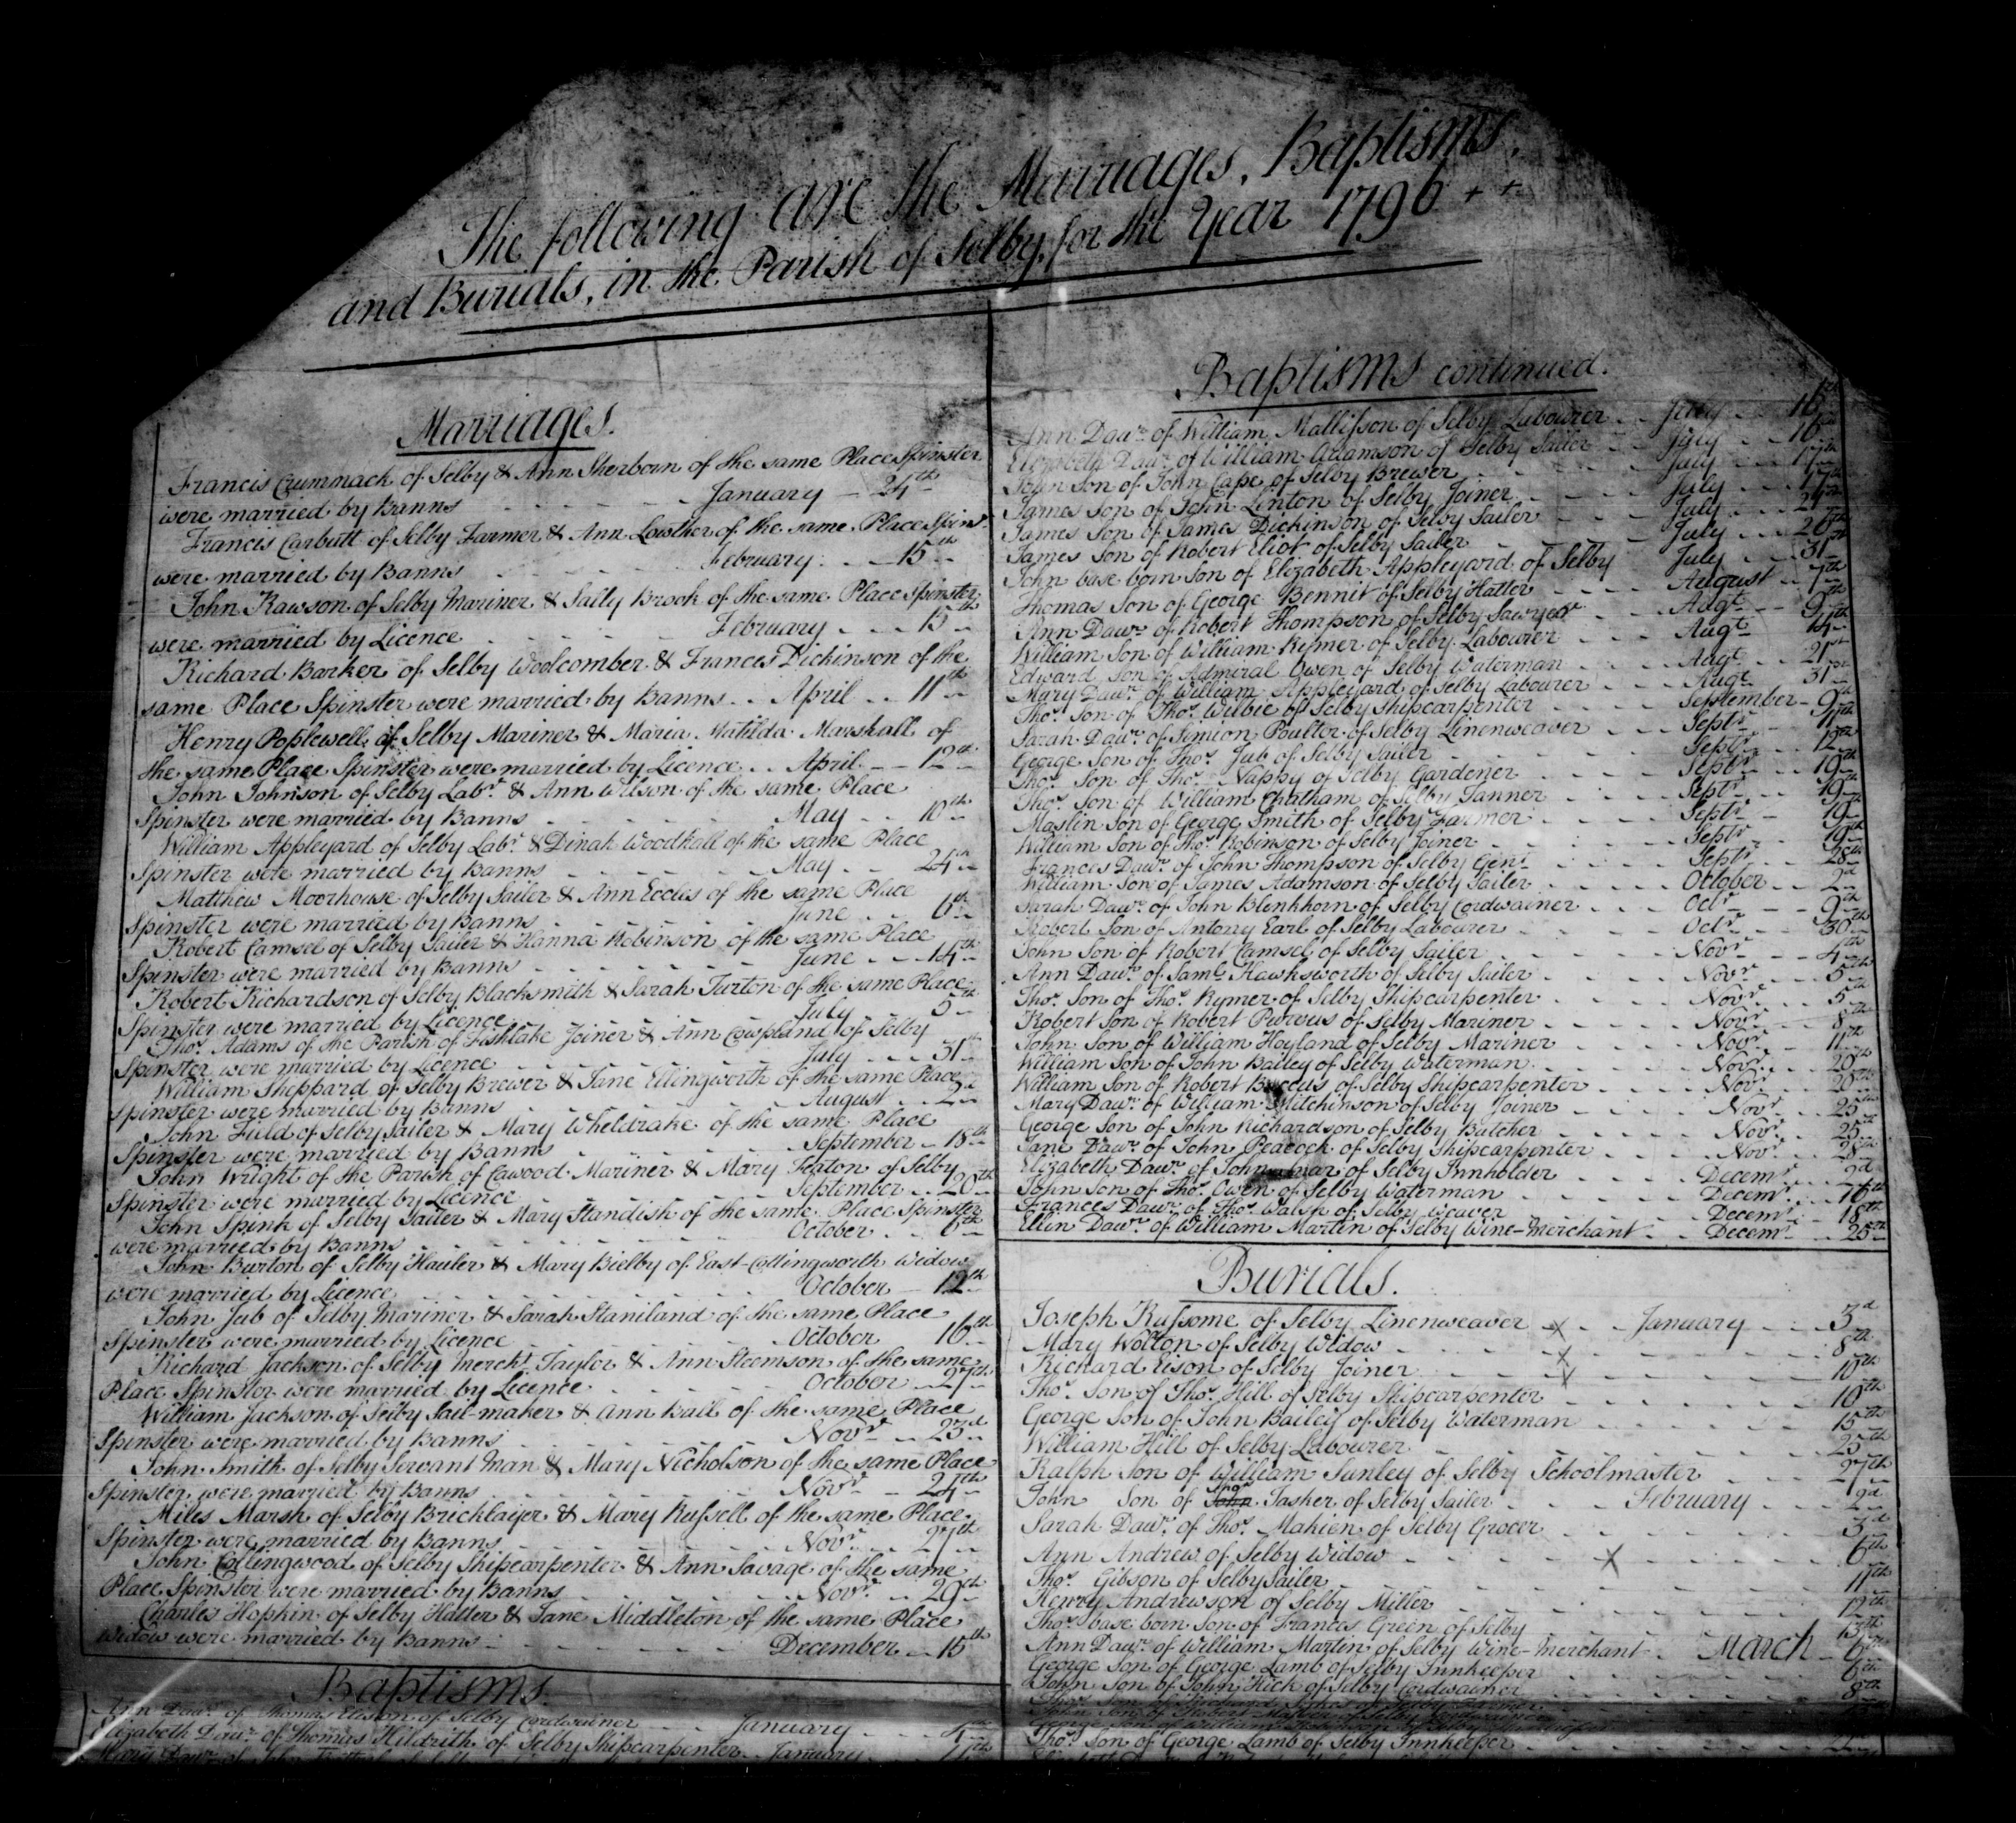 The following are the Marriages, Baptisms,
and Burials, in the Parish of Selby, for the Year 1796 + +
Marriages.
Francis Crummack of Selby & Ann Sherborn of the same Place Spinster
were married by Banns January 24th
Francis Carbutt of Selby Farmer & Ann Lowther of the same Place Spinr
were married by Banns February 15th
John Rawson of Selby Mariner & Sally Brook of the same Place Spinster
were married by Licence February 15th
Richard Barker of Selby Woolcomber & Frances Dickinson of the
same Place Spinster were married by Banns April 11th
Henry Popplewell of Selby Mariner & Maria Matilda Marshall of
the same Place Spinster were married by Licence April 12th
John Johnson of Selby Labr & Ann Wilson of the same Place
Spinster were married by Banns May 10th
William Appleyard of Selby Labr & Dinah Woodhall of the same Place
Spinster were married by Banns May 24th
Matthew Moorhouse of Selby Sailer & Ann Eccles of the same Place
Spinster were married by Banns June 6th
Robert Camsel of Selby Sailer & Hanna Robinson of the same Place
Spinster were married by Banns June 14th
Robert Richardson of Selby Blacksmith & Sarah Turton of the same Place
Spinster were married by Licence July 5th
Thos Adams of the Parish of Fishlake Joiner & Ann Cowpland of Selby
Spinster were married by Licence July 31st
William Sheppard of Selby Brewer & Jane Ellingworth of the same Place
Spinster were married by Banns August 2d
John Field of Selby Sailer & Mary Wheldrake of the same Place
Spinster were married by Banns September 18th
John Wright of the Parish of Cawood Mariner & Mary Seaton of Selby
Spinster were married by Licence September 20th
John Spink of Selby Sailer & Mary Standish of the same Place Spinster
were married by Banns October 6th
John Burton of Selby Hauler & Mary Bielby of East-Cottingworth Widow
were married by Licence October 12th
John Jub of Selby Mariner & Sarah Staniland of the same Place
Spinster were married by Licence October 16th
Richard Jackson of Selby Mercht Taylor & Ann Steemson of the same
Place Spinster were married by Licence October 27th
William Jackson of Selby Sail-maker & Ann Ball of the same Place
Spinster were married by Banns Novr 23d
John Smith of Selby Servant Man & Mary Nicholson of the same Place
Spinster were married by Banns Novr 24th
Miles Marsh of Selby Bricklayer & Mary Russell of the same Place
Spinster were married by Banns Novr 27th
John Collingwood of Selby Shipcarpenter & Ann Savage of the same
Place Spinster were married by Banns Novr 29th
Charles Hopkin of Selby Hatter & Jane Middleton of the same Place
Widow were married by Banns December 15th
Baptisms.
Ann Dawr of Thomas Elison of Selby Cordwainer January
Elizabeth Dawr of Thomas Hildrith of Selby Shipcarpenter January 11th
Baptisms continued.
Ann Dawr of William Mallisson of Selby Labourer July 16th
Elizabeth Dawr of William Adamson of Selby Sailer July 16th
John Son of John Cape of Selby Brewer July 17th
James Son of John Linton of Selby Joiner July 17th
James Son of James Dickinson of Selby Sailer July 24th
James Son of Robert Eliot of Selby Sailer July 26th
John base born Son of Elizabeth Appleyard of Selby July 31st
Thomas Son of George Bennit of Selby Hatter August 7th
Ann Dawr of Robert Thompson of Selby Sawyer Augt 9th
William Son of William Rymer of Selby Labourer Augt 14th
Edward Son of Admiral Owen of Selby Waterman Augt 21st
Mary Dawr of William Appleyard of Selby Labourer Augt 31st
Thos Son of Thos Wilbie of Selby Shipcarpenter September 9th
Sarah Dawr of Simion Poulter of Selby Linenweaver Septr 11th
George Son of Thos Jub of Selby Sailer Septr 12th
Thos Son of Thos Nappy of Selby Gardener Septr 19th
Thos Son of William Chatham of Selby Tanner Septr 19th
Maslin Son of George Smith of Selby Farmer Septr 19th
William Son of Thos Robinson of Selby Joiner Septr 19th
Frances Dawr of John Thompson of Selby Gent Septr 28th
William Son of James Adamson of Selby Sailer October 2d
Sarah Dawr of John Blenkhorn of Selby Cordwainer Octr 9th
Robert Son of Antony Earl of Selby Labourer Octr 30th
John Son of Robert Camsel of Selby Sailer Novr 4th
Ann Dawr of Saml Hawksworth of Selby Sailer Novr 5th
Thos Son of Thos Rymer of Selby Shipcarpenter Novr 5th
Robert Son of Robert Purvus of Selby Mariner Novr 8th
John Son of William Hoyland of Selby Mariner Novr 11th
William Son of John Bailey of Selby Waterman Novr 20th
William Son of Robert of Selby Shipcarpenter Novr 20th
Mary Dawr of William Mitchinson of Selby Joiner Novr 25th
George Son of John Richardson of Selby Butcher Novr 25th
Jane Dawr of John Peacock of Selby Shipcarpenter Novr 28th
Elizabeth Dawr of John of Selby Innholder Decemr 2d
John Son of Thos Owen of Selby Waterman Decemr 16th
Frances Dawr of Thos Walsh of Selby Weaver Decemr 18th
Ellin Dawr of William Martin of Selby Wine-Merchant Decemr 25th
Burials.
Joseph Russome of Selby Linenweaver x January 3d
Mary Wolton of Selby Widow x 8th
Richard Eison of Selby Joiner x 10th
Thos Son of Thos Hill of Selby Shipcarpenter 10th
George Son of John Bailey of Selby Waterman 15th
William Hill of Selby Labourer 25th
Ralph Son of William Sunley of Selby Schoolmaster 27th
John Son of Thos Tasker of Selby Sailer February 2d
Sarah Dawr of Thos Makien of Selby Grocer 3d
Ann Andrew of Selby Widow x 6th
Thos Gibson of Selby Sailer 11th
Henry Andrewson of Selby Miller 12th
Thos base born Son of Frances Green of Selby 13th
Ann Dawr of William Martin of Selby Wine-Merchant March 6th
George Son of George Lamb of Selby Innkeeper 6th
John Son of John Rick of Selby Cordwainer 8th
Thos Son of George Lamb of Selby Innkeeper 22d